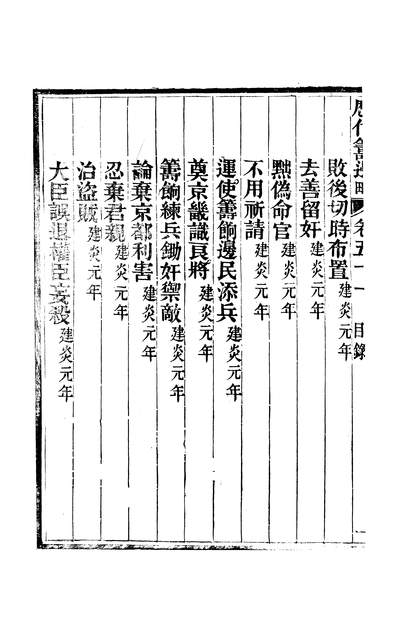 歷代籌邊略 卷五十一 目錄
敗後切時布置建炎元年
去善留奸建炎元年
黜偽命官建炎元年
不用祈請建炎元年
運使籌餉邊民添兵建炎元年
奠京畿識良將建炎元年
籌餉練兵鋤奸禦敵建炎元年
論棄京都利害建炎元年
忍棄君親建炎元年
治盜賊建炎元年
大臣誤退權臣妄殺建炎元年